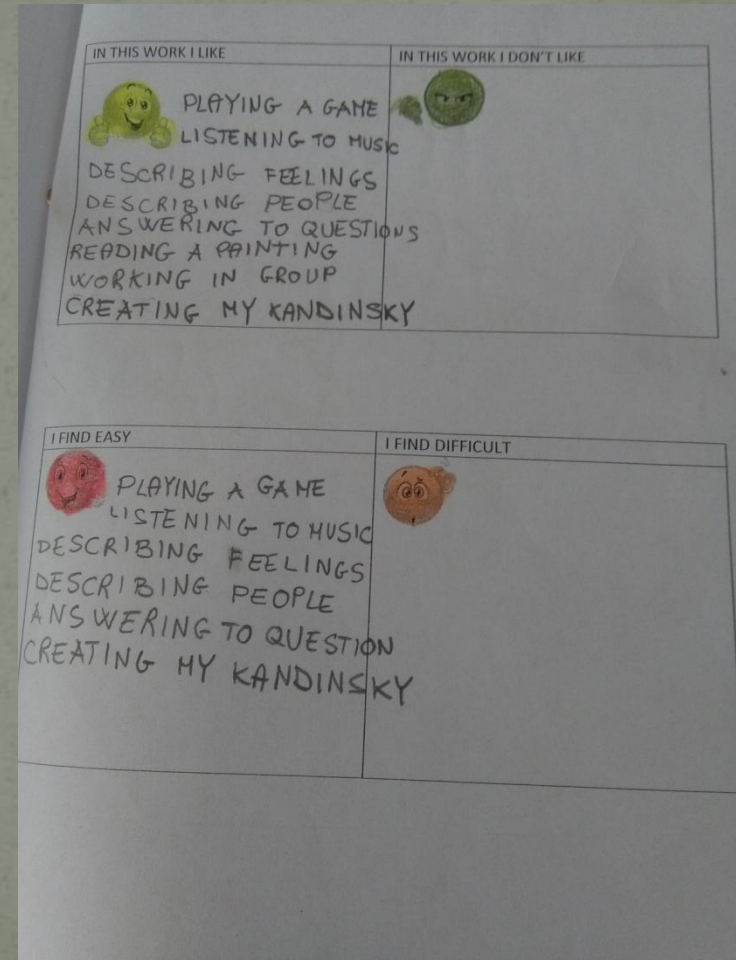 IN THIS WORK I LIKE
IN THIS WORK I DON'T LIKE
PLAYING A GAME
LISTENING TO MUSIC
DESCRIBING FEELINGS
DESCRIBING PEOPLE
ANSWERING TO QUESTIONS
READING A PAINTING
WORKING IN GROUP
CREATING MY KANDINSKY
I FIND EASY
I FIND DIFFICULT
PLAYING A GAME
LISTENING TO MUSIC
DESCRIBING FEELINGS
DESCRIBING PEOPLE
ANSWERING TO QUESTION
CREATING MY KANDINSKY